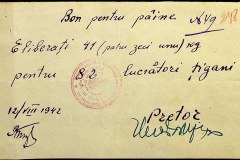 Bon pentru pâine № 49
Eliberați 41 (patru zeci unu) kg
pentru 82 lucrători țigani
12/VIII 1942
Pretor